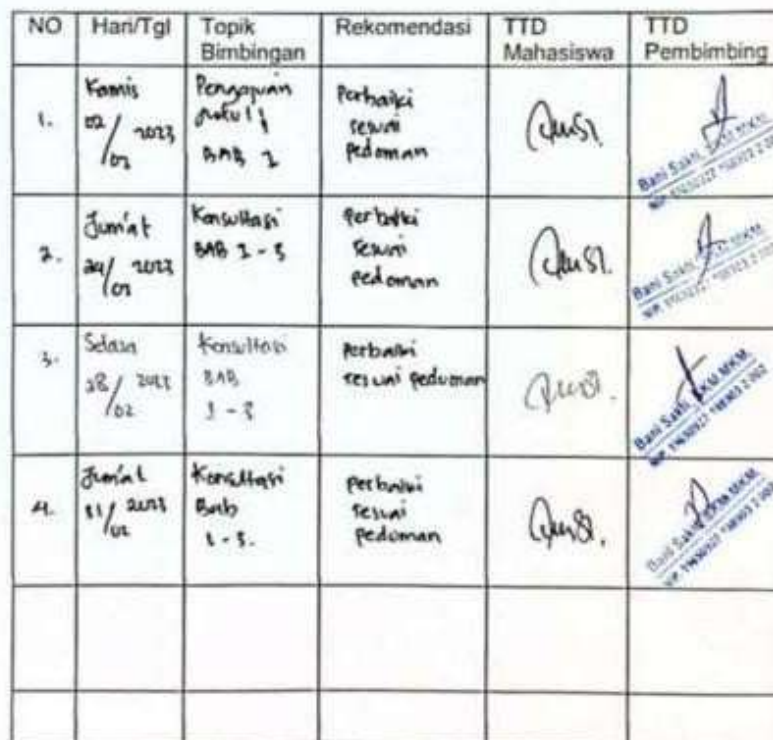 NO Hari/Tgl Topik Bimbingan Rekomendasi TTD Mahasiswa TTD Pembimbing
1. Kamis 02/02 2023 Pengajuan BAB 1 Perbaiki sesuai pedoman
Bani Sakti, SKM.MKM.
NIP.
2. Jum'at 24/02 2023 Konsultasi BAB 1 - 3 perbaiki sesuai pedoman
Bani Sakti, SKM.MKM.
NIP.
3. Selasa 28/02 2023 Konsultasi BAB 1 - 3 perbaiki sesuai pedoman
Bani Sakti, SKM.MKM.
NIP.
4. Jum'at 2023 Konsultasi Bab 1 - 3. perbaiki sesuai pedoman
Bani Sakti, SKM.MKM.
NIP.